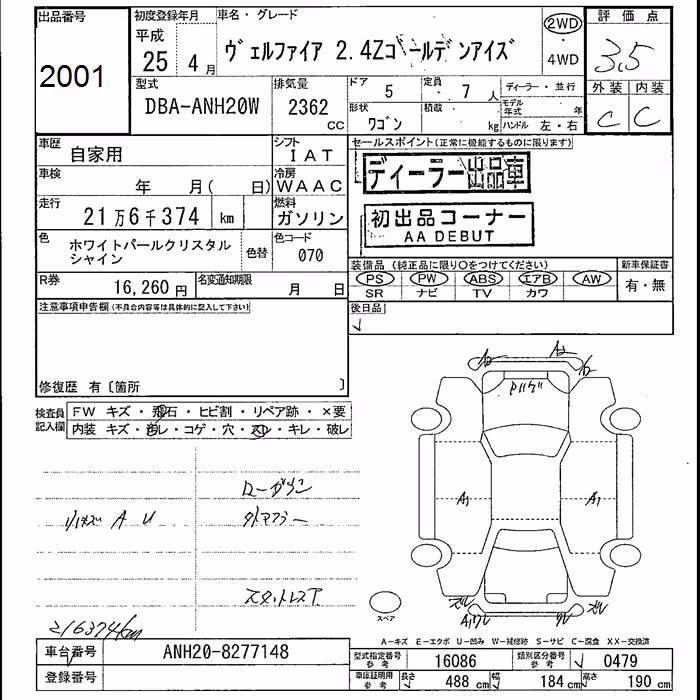 出品番号
2001
初度登録年月
平成
25年 4月
車名・グレード
ヴェルファイア 2.4Zゴールデンアイズ
2WD
4WD
評価点
3.5
外装 内装
C C
型式
DBA-ANH20W
排気量
2362 CC
ドア
5
定員
7人
形状
ワゴン
積載
kg
ディーラー・並行
モデル年式 年
ハンドル 左・右
車歴
自家用
シフト
IAT
車検
年 月( 日)
冷房
WAAC
走行
21万6千374 km
燃料
ガソリン
色
ホワイトパールクリスタル
シャイン
色替
色コード
070
R券
16,260円
名変通知期限
月 日
セールスポイント(正常に機能するものに限ります)
ディーラー出品車
初出品コーナー
AA DEBUT
装備品(純正品に限り○をつけてください)
PS PW ABS エアB AW
SR ナビ TV カワ
新車保証書
有・無
後日品
注意事項申告欄(不具合内容等は具体的に記入して下さい)
修復歴 有〔箇所 〕
検査員
記入欄
FW キズ・飛石・ヒビ割・リペア跡・×要
内装 キズ・汚レ・コゲ・穴・スレ・キレ・破レ
A U
A2 A2
A1 A1
スペア
216374km
A-キズ E-エクボ U-凹み W-補修跡 S-サビ C-腐食 XX-交換済
車台番号
ANH20-8277148
登録番号
型式指定番号
参考
16086
類別区分番号
参考
0479
車庫証明用
参考
長さ 488cm 幅 184cm 高さ 190cm